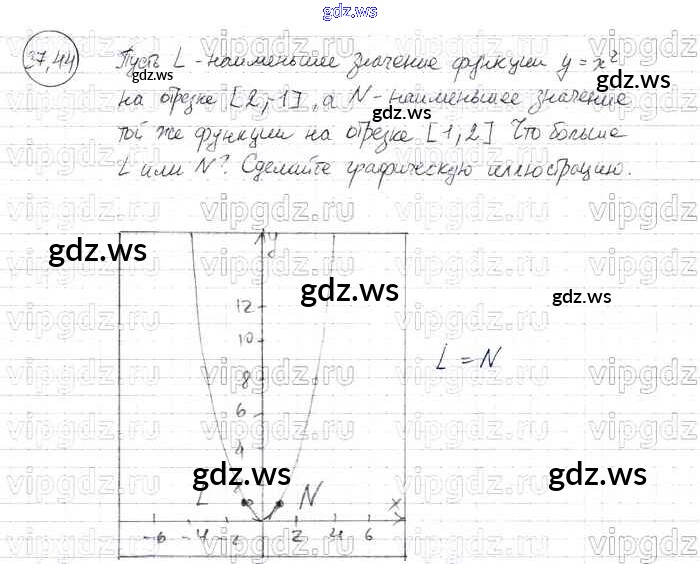 gdz.ws
37,44
Пусть L - наименьшее значение функции y = x²
на отрезке [2,-1], а N - наименьшее значение
той же функции на отрезке [1,2] Что больше
L или N? Сделайте графическую иллюстрацию.
y
12
10
8
6
4
2
L = N
L N x
-6 -4 -2 2 4 6
gdz.ws
gdz.ws
gdz.ws
gdz.ws
gdz.ws
gdz.ws
gdz.ws
vipgdz